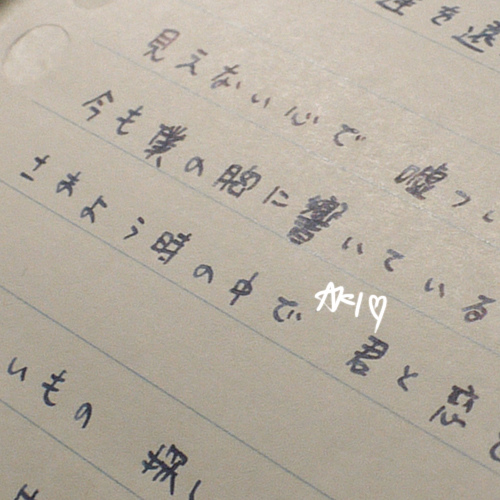 を
見えない心で 嘘つ
今も僕の胸に響いている
さまよう時の中で 君と恋を
いもの 探し